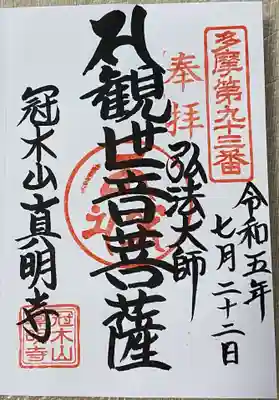 多摩第九十三番
奉拝
令和五年
七月二十二日
弘法大師
観世音菩薩
冠木山真明寺
冠木山